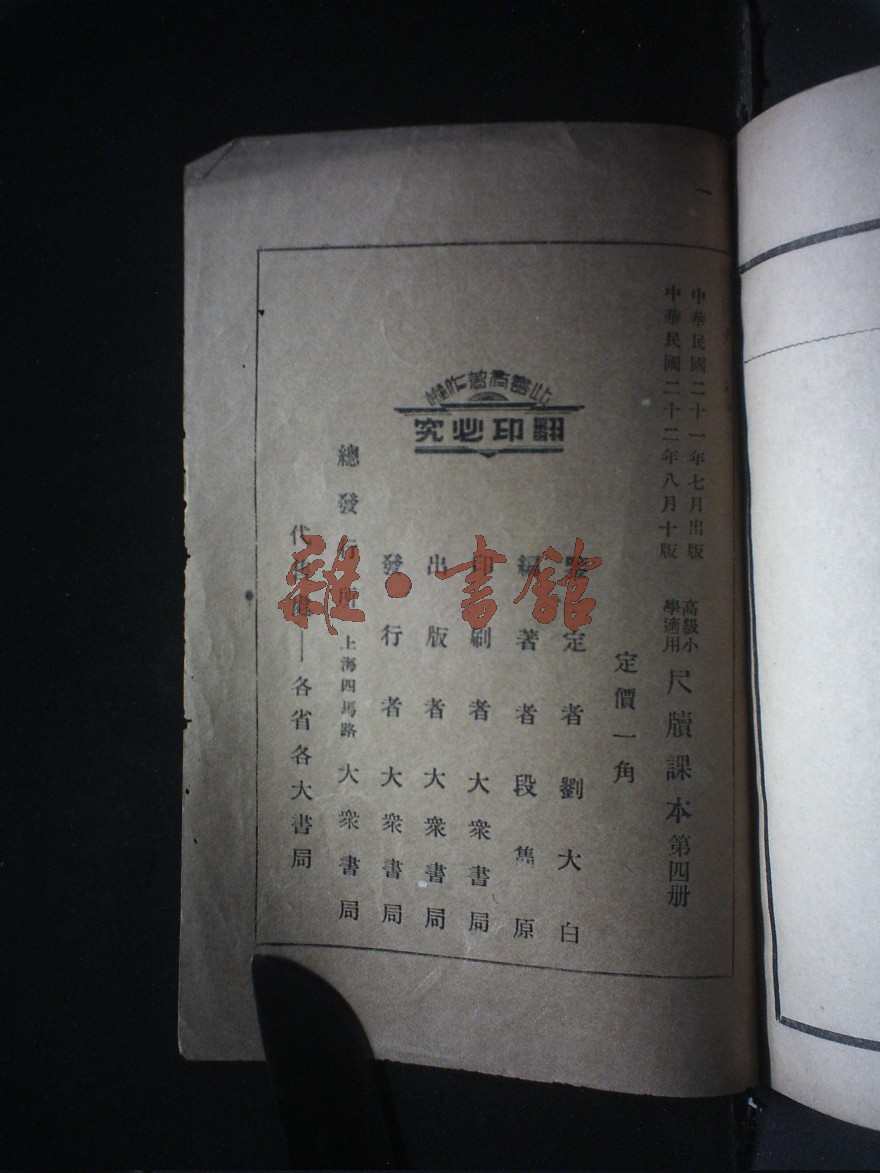 中華民國二十一年七月出版
中華民國二十二年八月十版
高級小學適用
尺牘課本第四册
定價一角
定者劉大白
編著者段集原
印刷者大衆書局
出版者大衆書局
發行者大衆書局
此書有著作權
翻印必究
總發行所上海四馬路大衆書局
代 各省各大書局
雜·書館